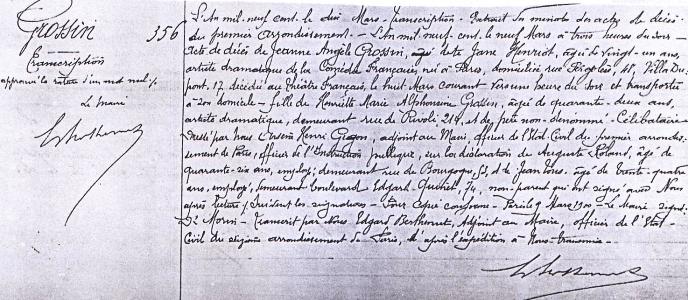 Grossin
356
Transcription
approuvé la rature d'un mot nul ./.
Le Maire
L'An mil neuf cent le dix Mars - Transcription - Extrait du minute des actes de décès
du premier arrondissement - L'An mil neuf cent le neuf Mars à trois heures du soir -
Acte de décès de Jeanne Angèle Grossin, dite Jane Henriot, âgée de vingt-un ans,
artiste dramatique de la Comédie Française, née à Paris, domiciliée rue 48, Villa Du-
pont, 17 décédée au Théâtre Français, le huit Mars courant vers une heure du soir et transportée
à son domicile - fille de Henriette Marie Alphonsine Grossin, âgée de quarante-deux ans,
artiste dramatique, demeurant rue de Rivoli, 214, et de père non-dénommé - Célibataire -
Dressé par Nous Henri adjoint au Maire, officier de l'Etat-Civil du premier arrondis-
sement de Paris, officier de l'Instruction publique, sur la déclaration de Auguste âgé de
quarante-six ans, employé, demeurant rue de Bourgogne, et de Jean âgé de trente-quatre
ans, employé, demeurant boulevard Edgard Quinet, 74, non-parents qui ont signé avec Nous
après lecture / Suivent les signatures - Pour copie conforme - Paris le 9 Mars 1900 - Le Maire signé:
Dr Morin - Transcrit par Nous, Edgard Adjoint au Maire, officier de l'Etat-
Civil du seizième arrondissement de Paris, d'après l'expédition à Nous transmise -